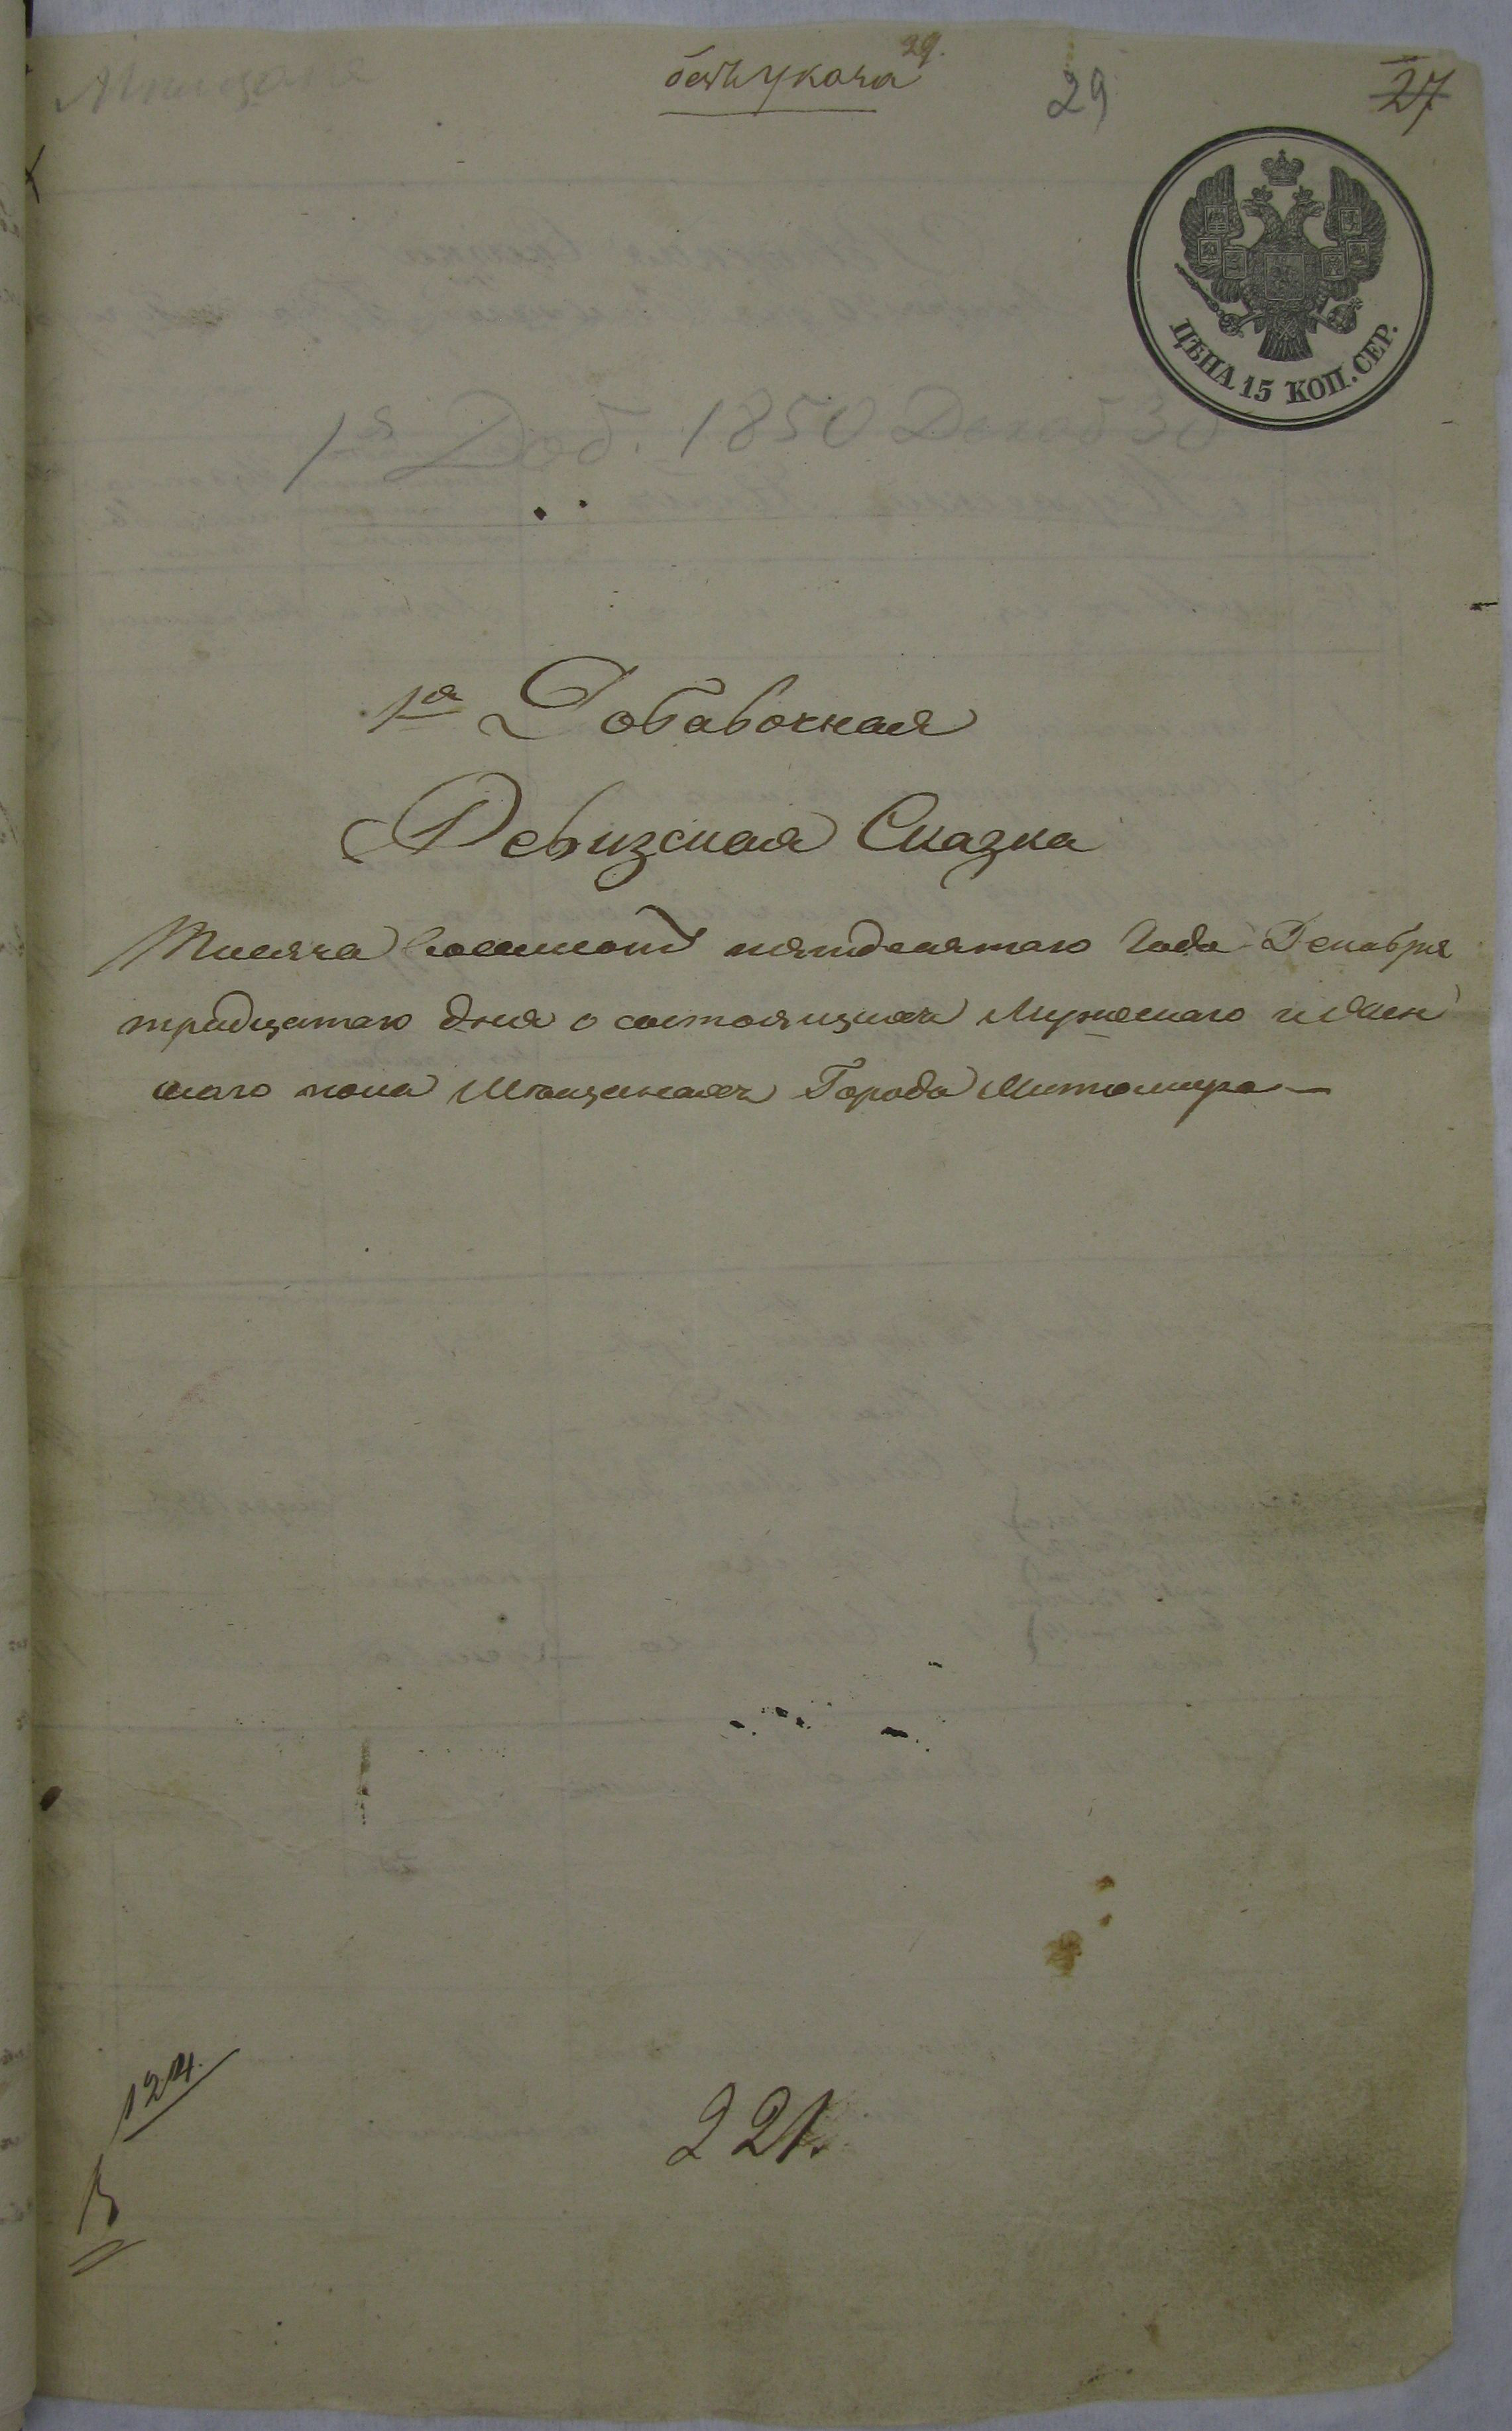 Мещане
29.
безъ указа
29
27
ЦѢНА 15 КОП. СЕР.
1я Доб. 1850 Декаб 30
1я Добавочная
Ревизская Сказка
Тисяча восемсотъ пятдесятаго Года Декабря
тридцатаго дня о состоящихъ Мужескаго и Жен
скаго пола Мѣщанахъ Города Житомира —
124.
221.